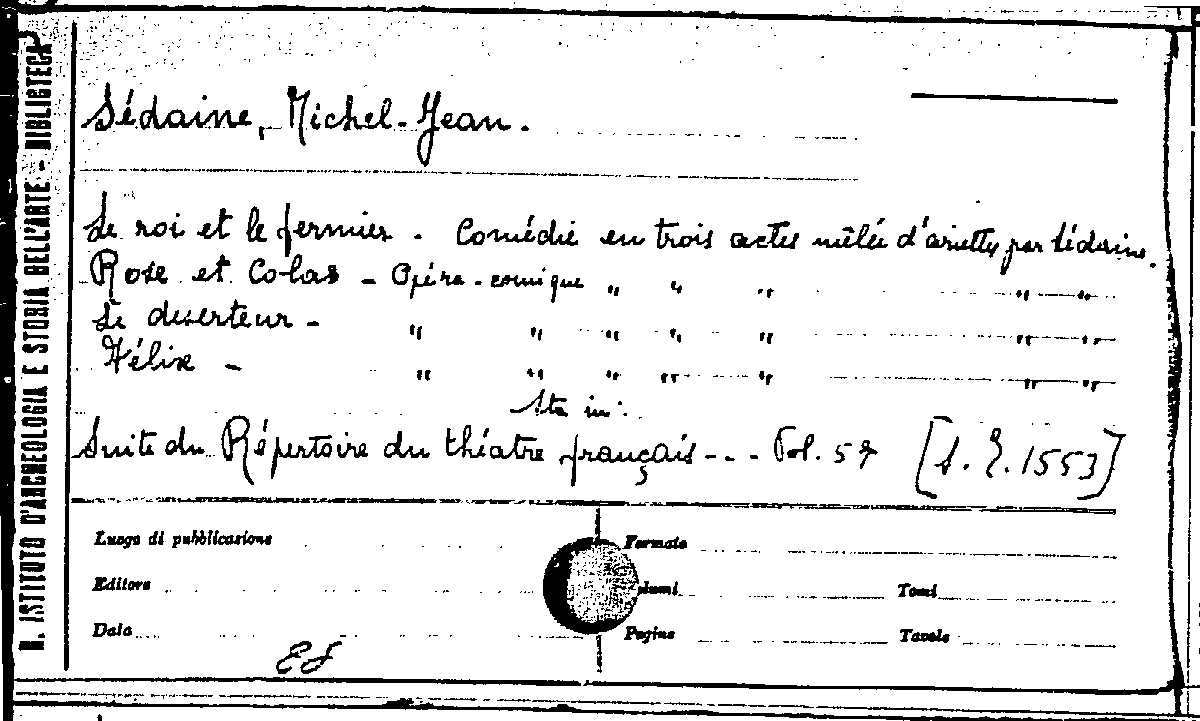 R. ISTITUTO D'ARCHEOLOGIA E STORIA DELL'ARTE - BIBLIOTECA
Sédaine, Michel-Jean.
Le roi et le fermier. Comédie en trois actes mêlée d'ariettes par Sédaine.
Rose et Colas - Opéra-comique " " " " "
Le deserteur - " " " " " " "
Félix - " " " " " " "
Sta in:
Suite du Répertoire du théatre français - - - Vol. 57 [S. E. 1553]
Luogo di pubblicazione
Formato
Editore
lumi
Tomi
Data
Pagine
Tavole